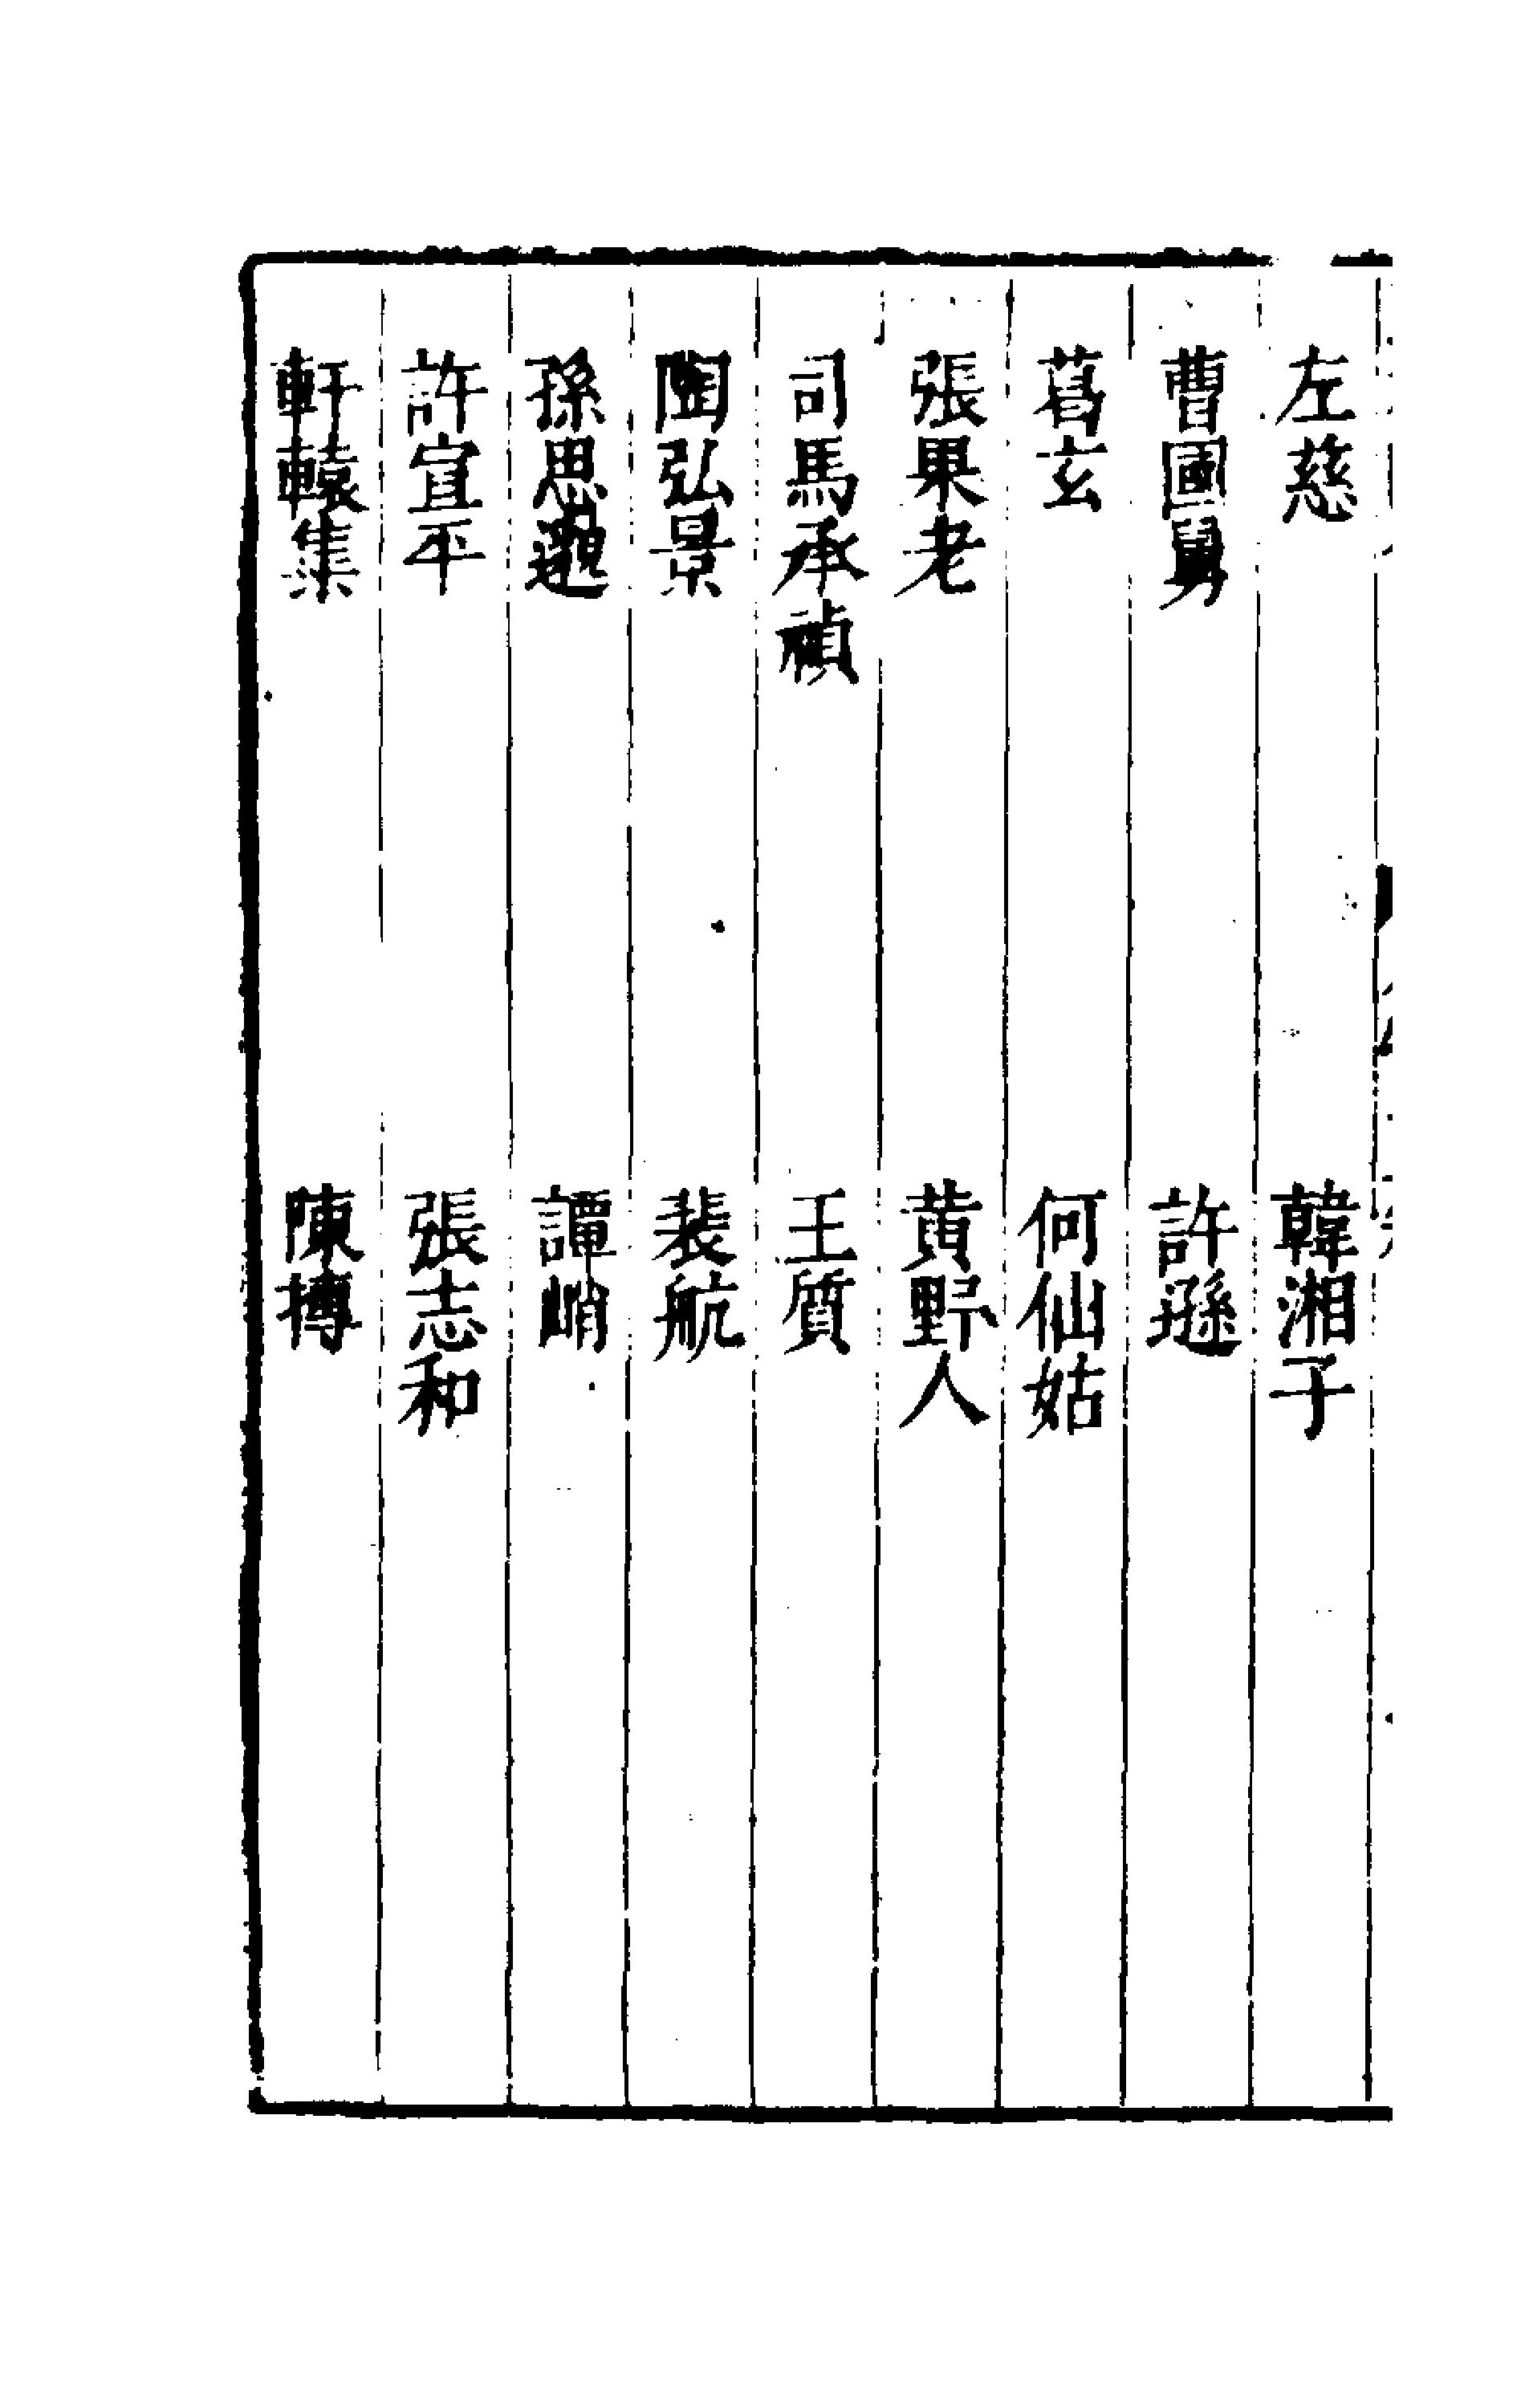 左慈　韓湘子
曹國舅　許遜
葛玄　何仙姑
張果老　黄野人
司馬承禎　王質
陶弘景　裴航
孫思邈　譚峭
許宣平　張志和
軒轅集　陳摶